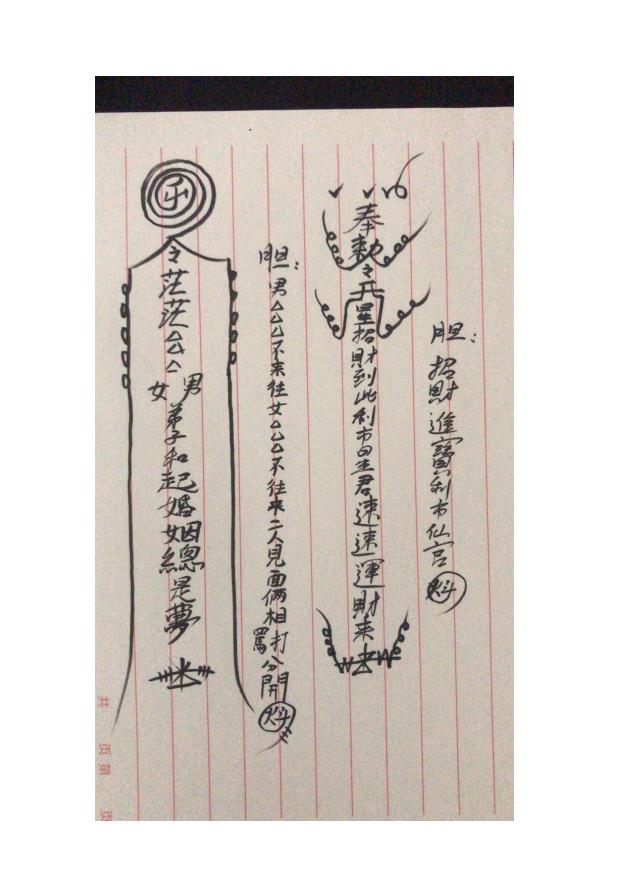 胆：招財進寶利市仙官魁
奉敕令
星招財到此利市星君速速運財来
胆：男△△△不来往女△△△不往来二人見面俩相打罵分開魁
令茫茫△△△
男女
弟子和起婚姻總是夢
共 页 第 页